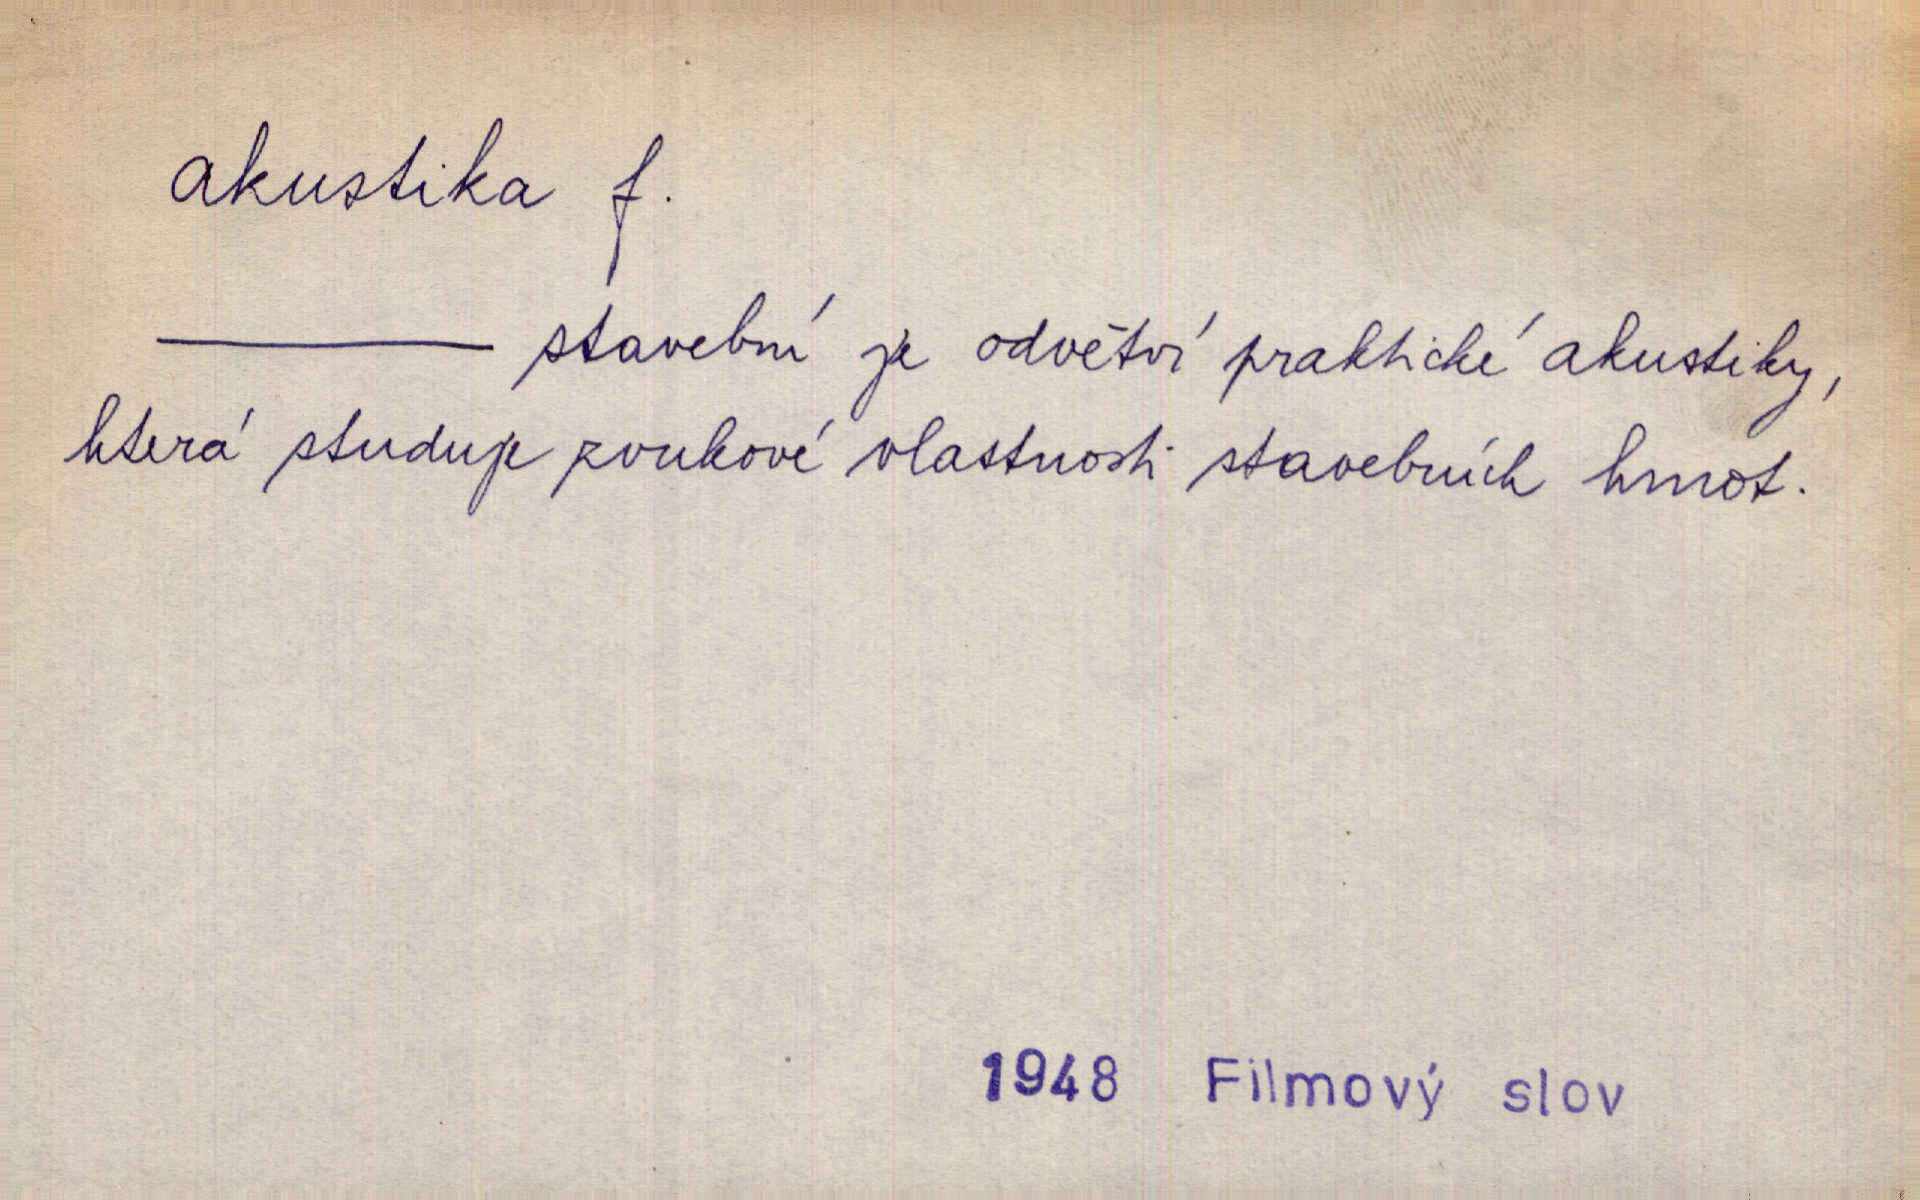 akustika f.
——— stavební je odvětví praktické akustiky,
která studuje zvukové vlastnosti stavebních hmot.
1948 Filmový slov